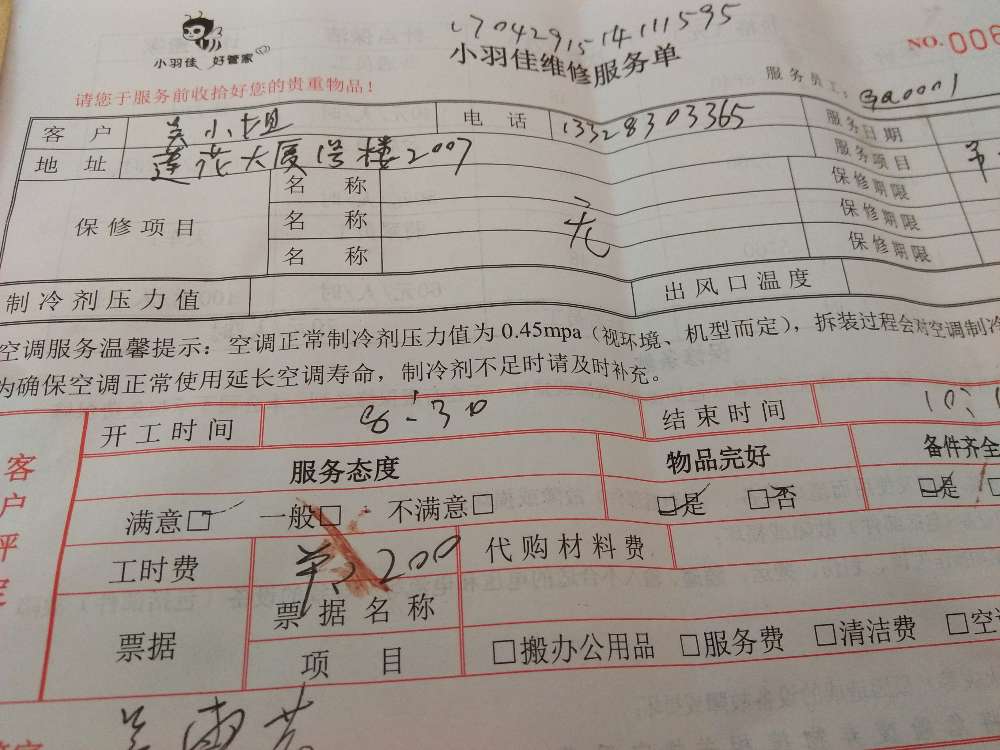 小羽佳 好管家
17042915 14111595
小羽佳维修服务单
NO. 006
请您于服务前收拾好您的贵重物品！
服务员工：
客户 吴小姐 电话 13328303365 服务日期
地址 莲花大厦 楼2007 服务项目
保修项目 名称 保修期限
名称 无 保修期限
名称 保修期限
制冷剂压力值 出风口温度
空调服务温馨提示：空调正常制冷剂压力值为0.45mpa（视环境、机型而定），拆装过程会对空调制冷
为确保空调正常使用延长空调寿命，制冷剂不足时请及时补充。
客户评定
开工时间 8:30 结束时间 10:
服务态度 物品完好 备件齐全
满意□ 一般□ 不满意□ □是 □否 □是
工时费 200 代购材料费
票据 票据名称
项目 □搬办公用品 □服务费 □清洁费 □空